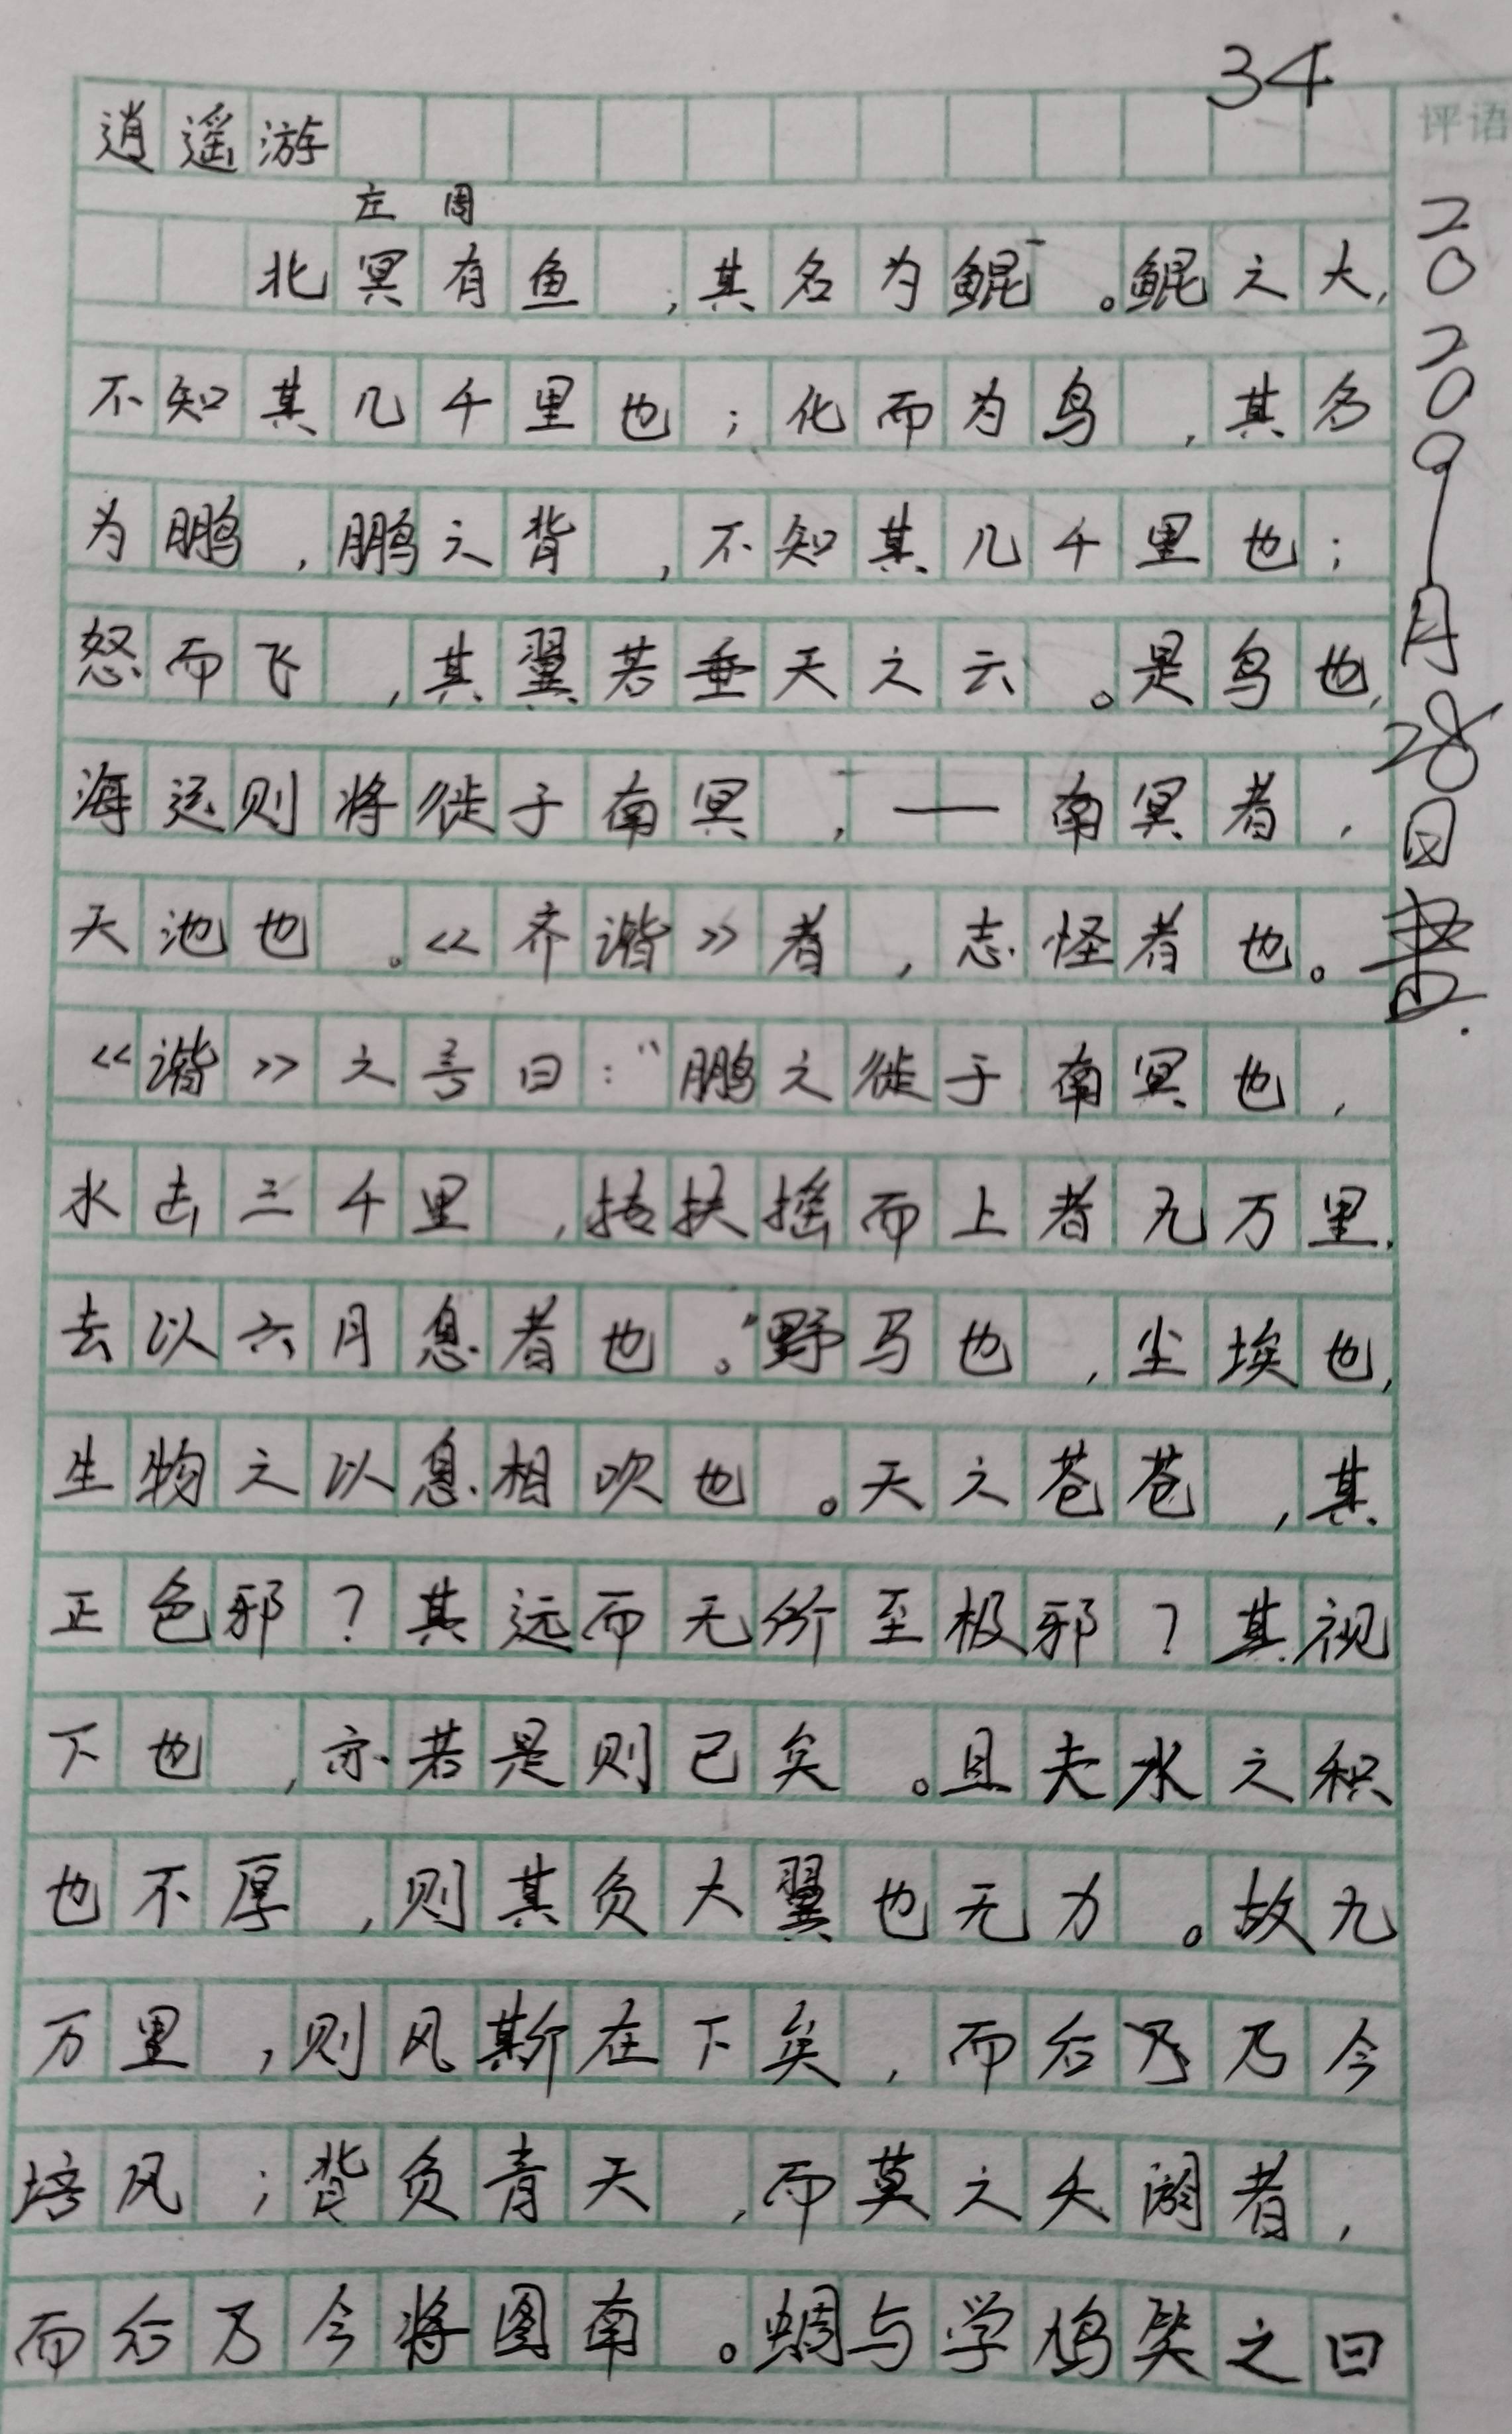 34
逍遥游
庄周
北冥有鱼,其名为鲲。鲲之大,
不知其几千里也;化而为鸟,其名
为鹏,鹏之背,不知其几千里也;
怒而飞,其翼若垂天之云。是鸟也,
海运则将徙于南冥,——南冥者,
天池也。《齐谐》者,志怪者也。
《谐》之言曰:“鹏之徙于南冥也,
水击三千里,抟扶摇而上者九万里,
去以六月息者也。”野马也,尘埃也,
生物之以息相吹也。天之苍苍,其
正色邪?其远而无所至极邪?其视
下也,亦若是则已矣。且夫水之积
也不厚,则其负大翼也无力。故九
万里,则风斯在下矣,而后乃乃今
培风;背负青天,而莫之夭阏者,
而后乃今将图南。蜩与学鸠笑之曰
评语
2020 9月28日书.